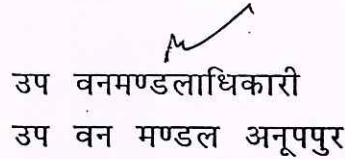 उप वनमण्डलाधिकारी
उप वन मण्डल अनूपपुर